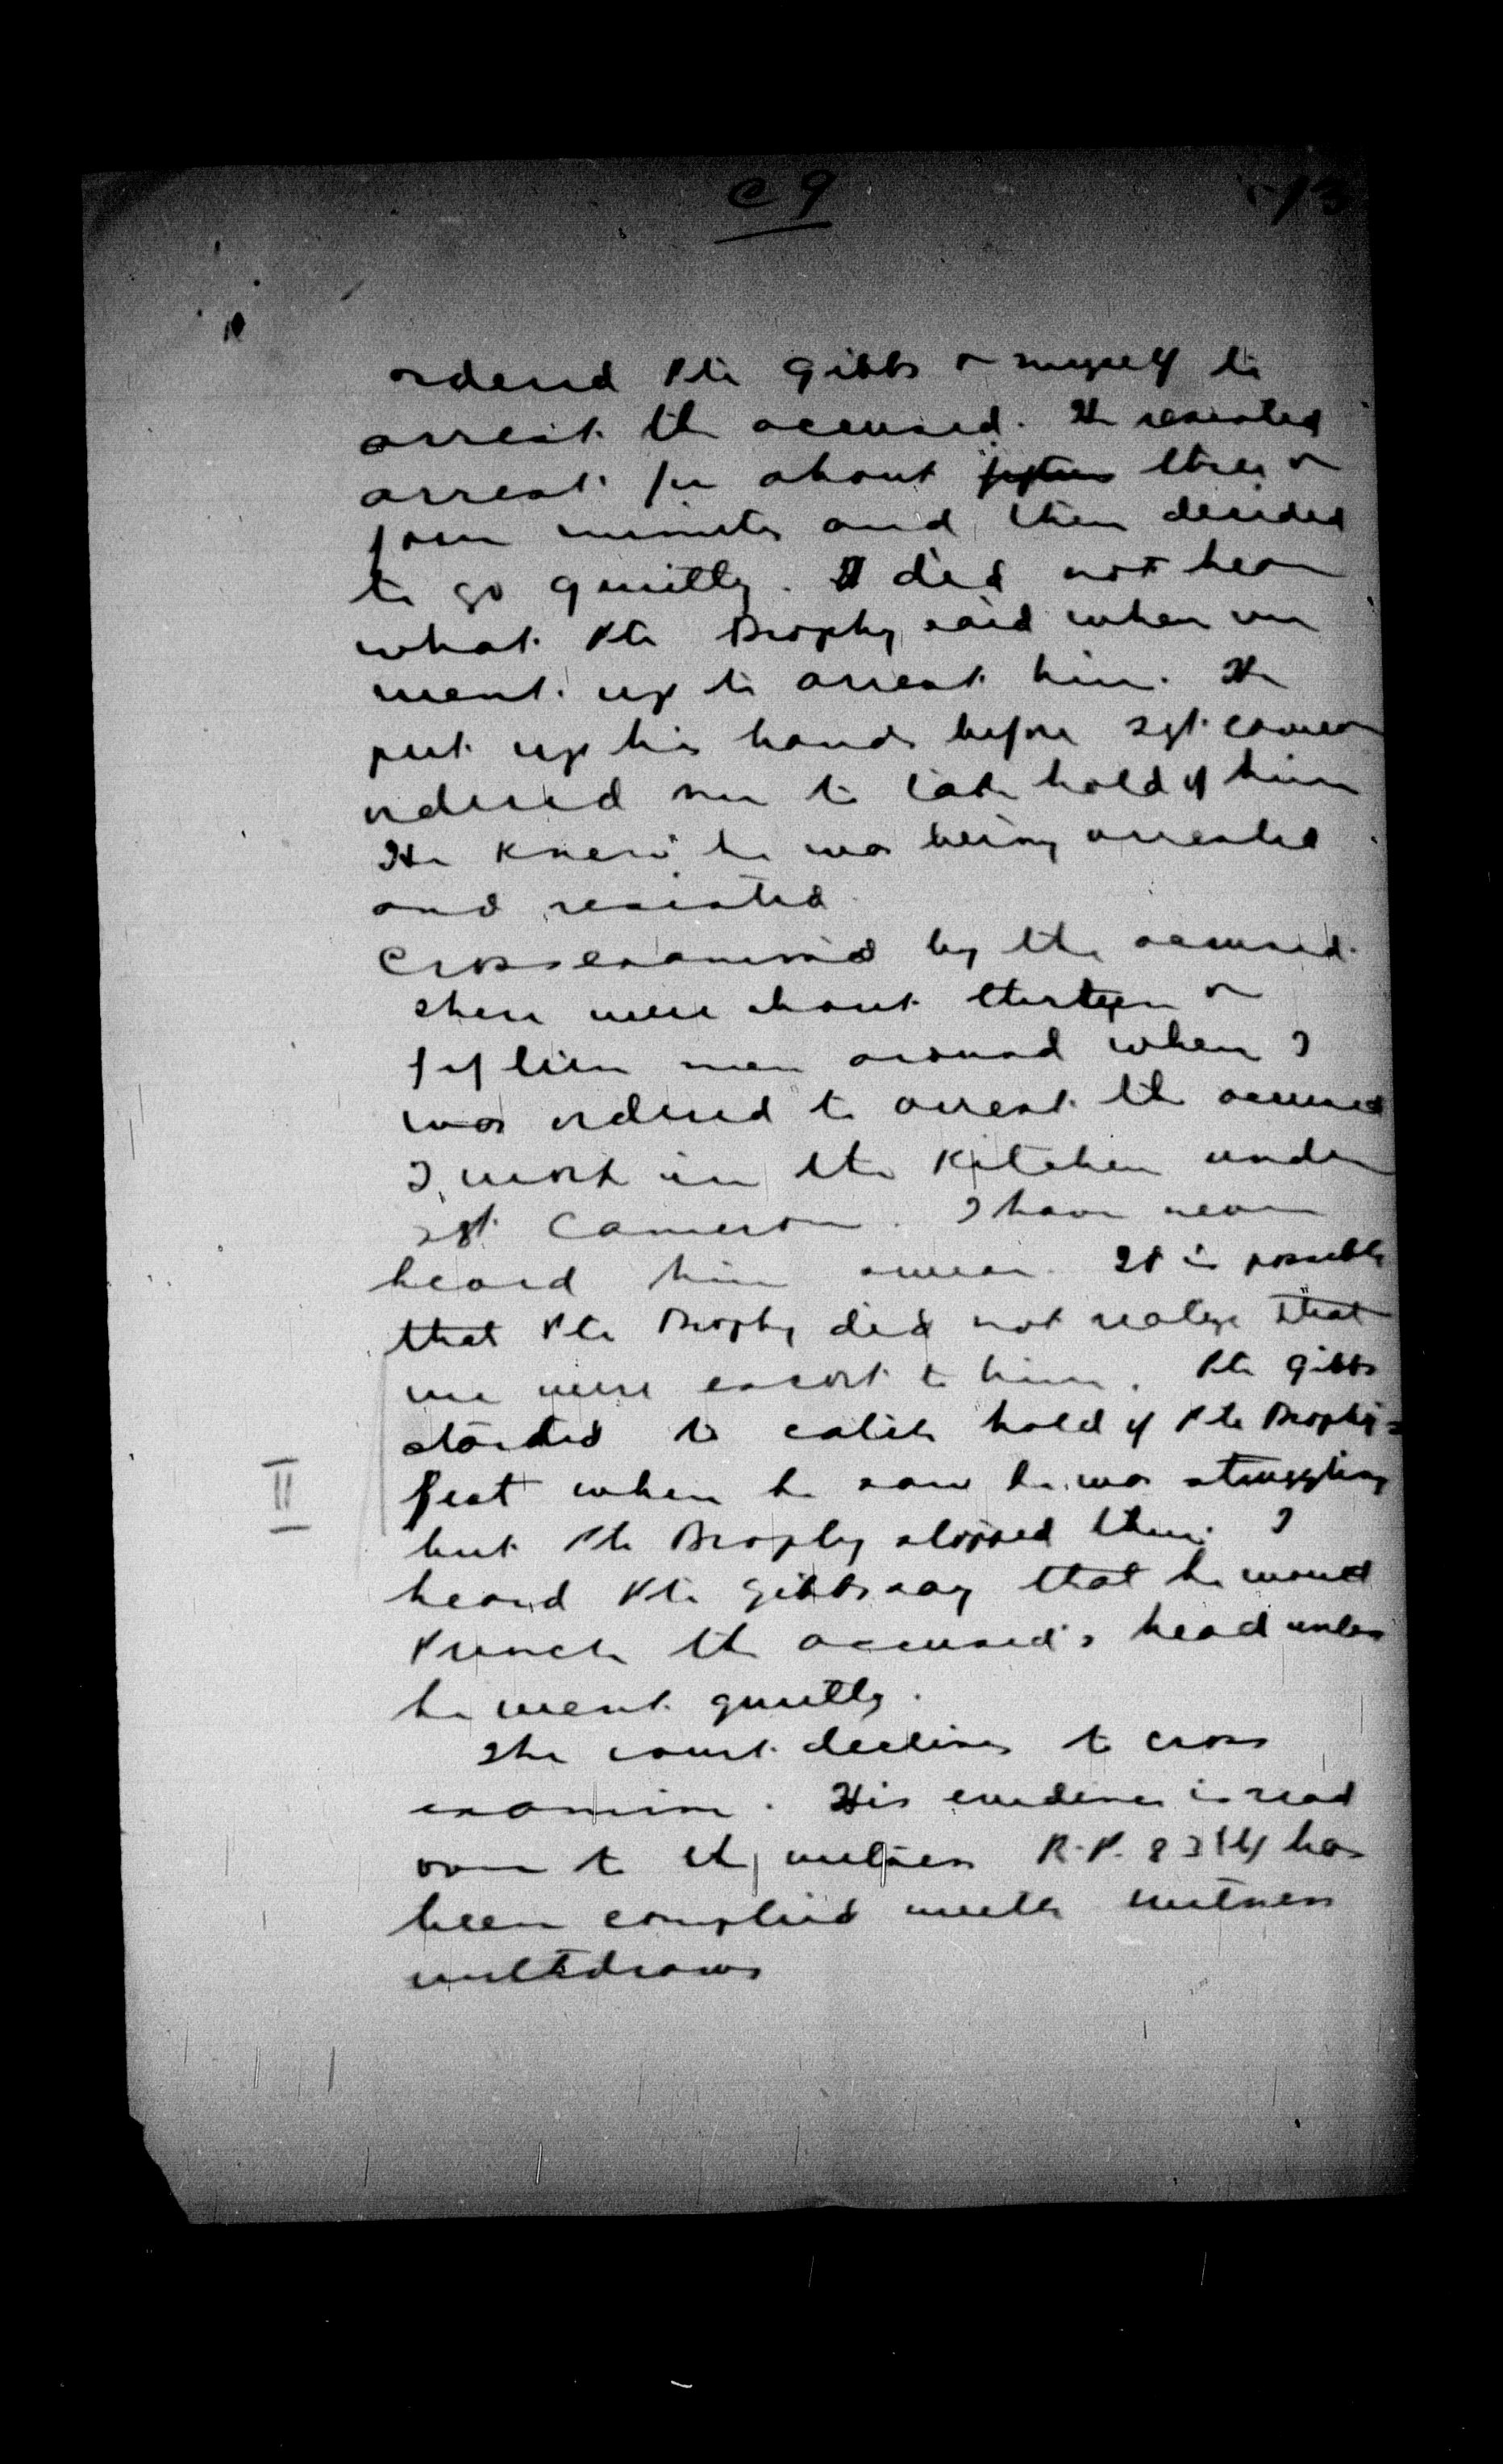 C 9
13
ordered Pte Gibbs & myself to
arrest the accused. He resisted
arrest for about fifteen three or
four minutes and then decided
to go quietly. I did not hear
what Pte Brophy said when we
went up to arrest him. He
put up his hands before Sgt. Cameron
ordered me to take hold of him
He knew he was being arrested
and resisted.
Cross examined by the accused.
There were about thirteen or
fifteen men around when I
was ordered to arrest the accused
I work in the Kitchen under
Sgt. Cameron. I have never
heard him swear. It is possible
that Pte Brophy did not realize that
we were escort to him. Pte Gibbs
started to catch hold of Pte Brophy's
feet when he saw he was struggling
II
but Pte Brophy stopped then. I
heard Pte Gibbs say that he would
Punch the accused's head unless
he went quietly.
The court declines to cross
examine. His evidence is read
over to the witness R.P. 83(B) has
been complied with witness
withdraws